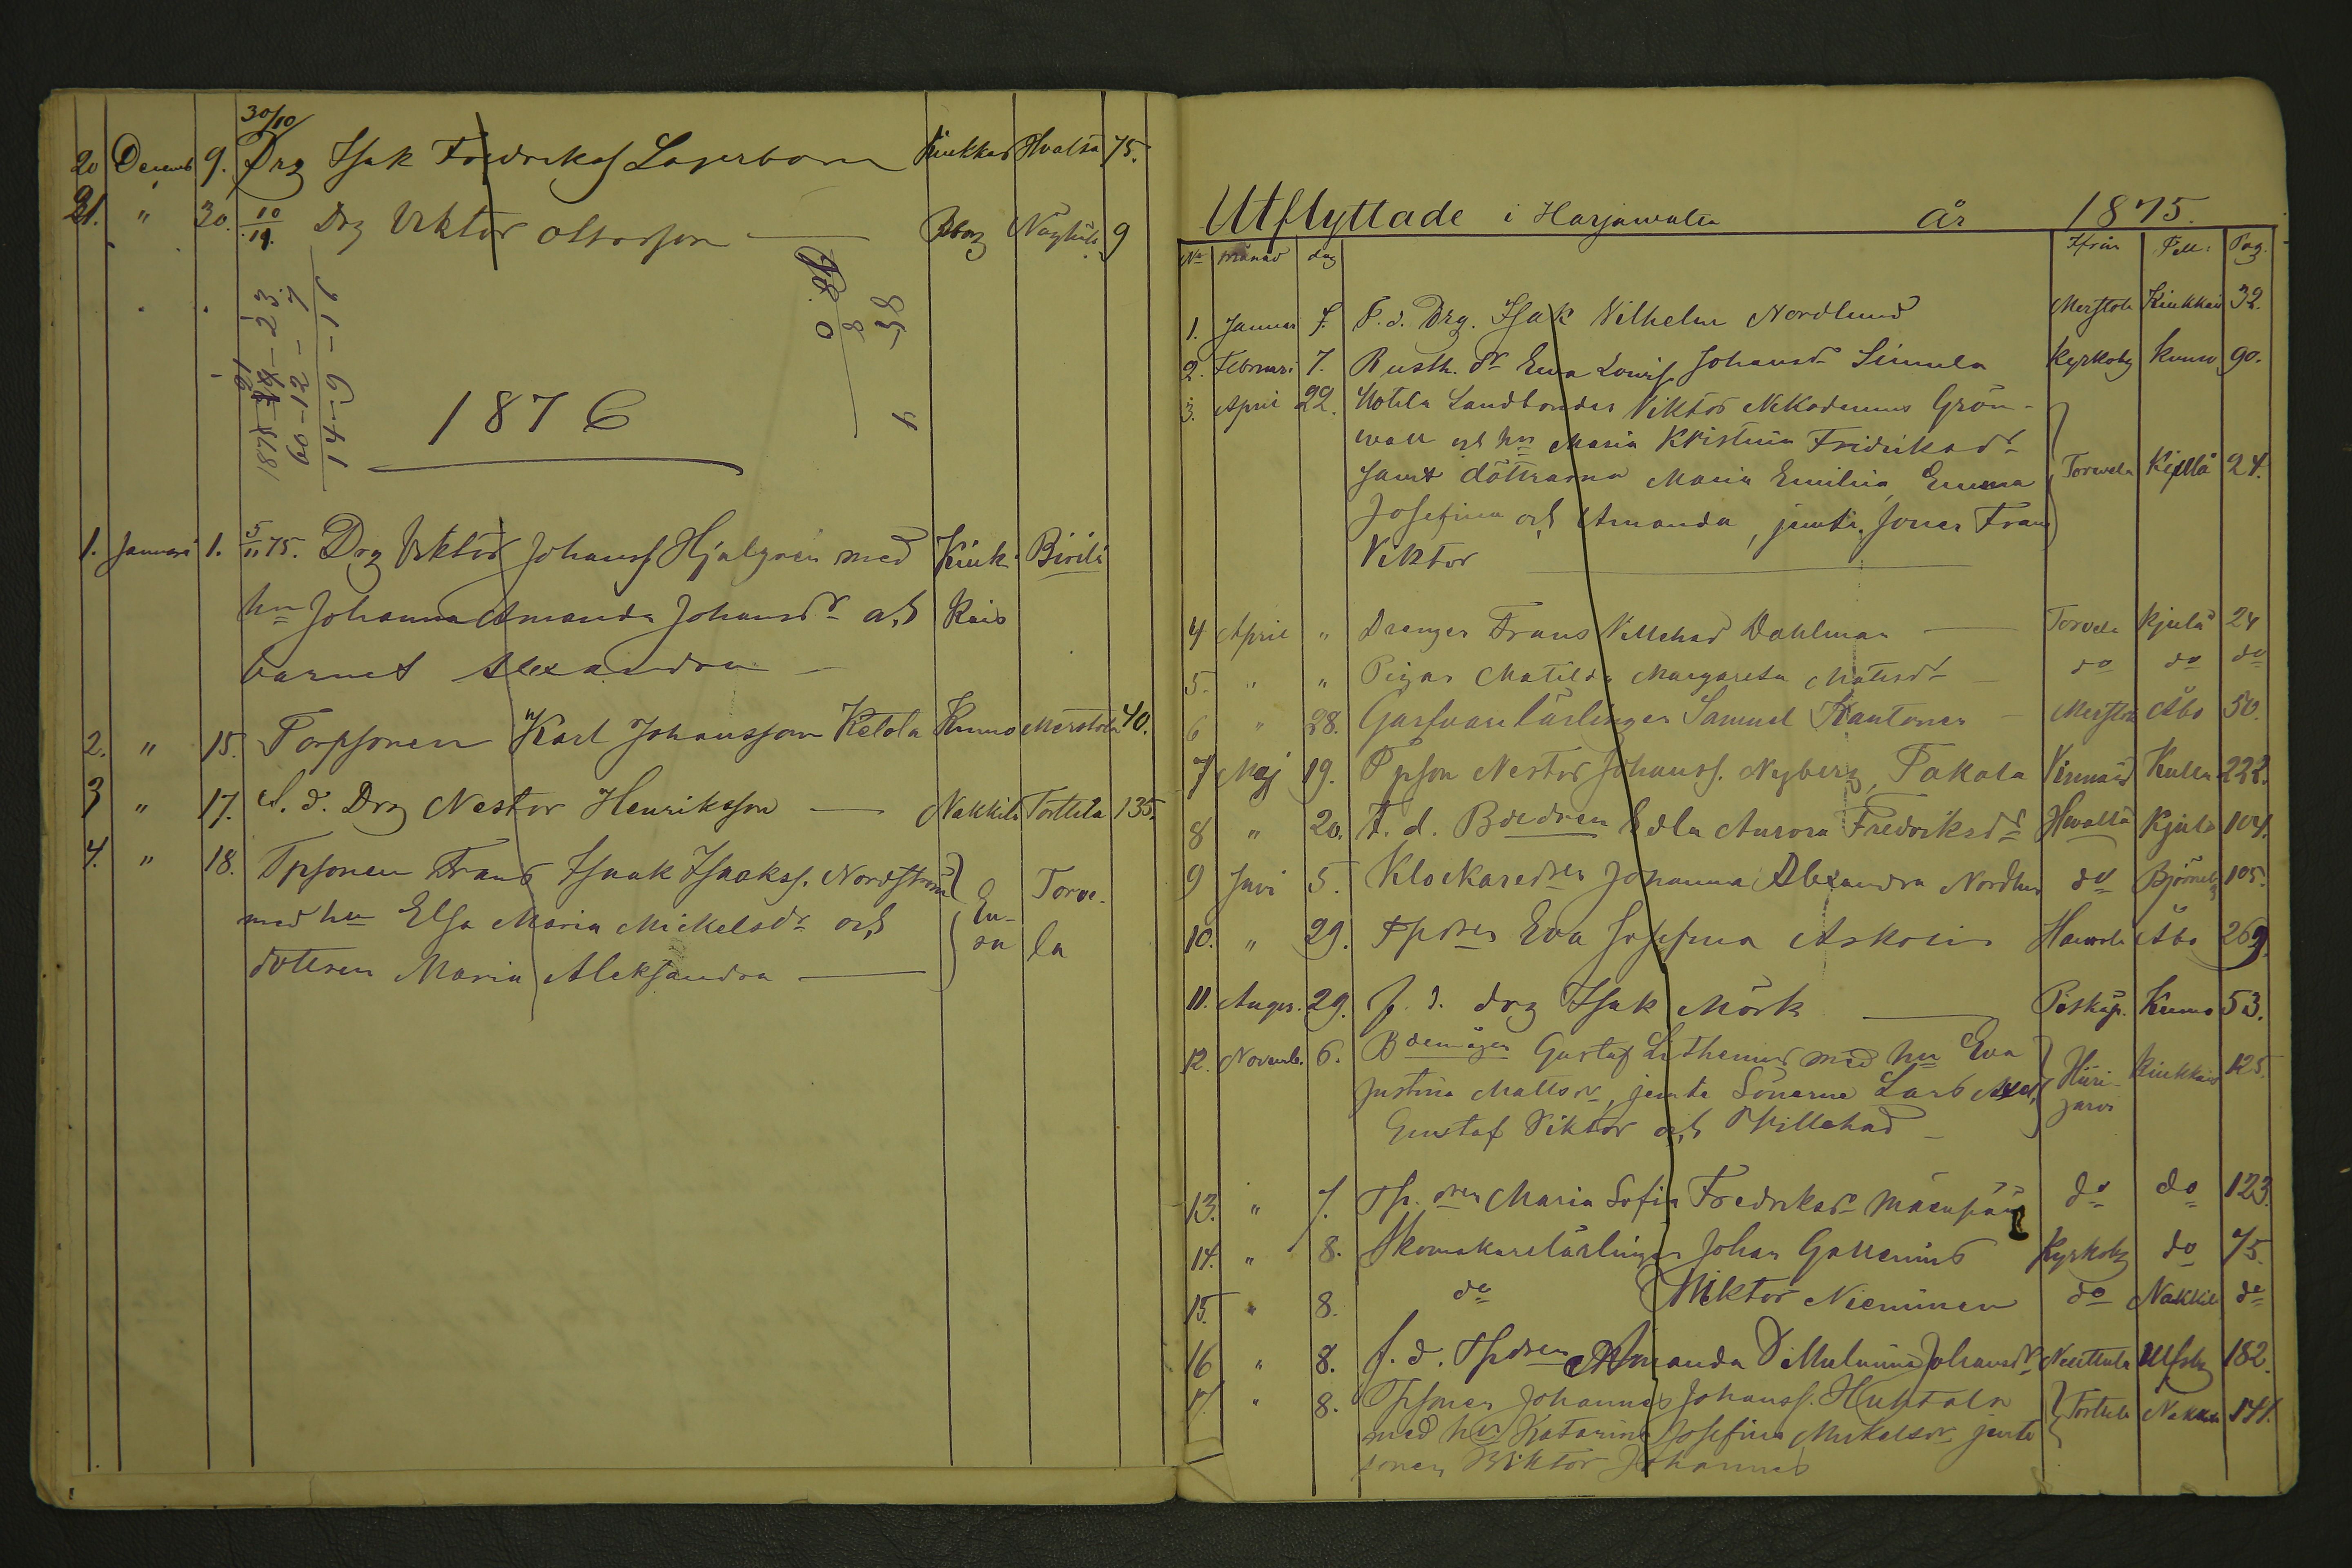 30/10
20 Decemb 9. Drg Isak Fredriks Lagerbom Kiukkais Hvalsä 75.
21. " 30. 10/11. Drg Viktor Ottosson Nägkül 9
1875 - 23
60 - 12 - 7
14 - 9 - 16
1876
1. Januari 1. 5/11 75. Drg Viktor Johanss Hjulgren med Kiuk- Birilä
hu Johanna Amanda Johansdr och kais
barnet Alexandra
2. " 15. Torpsonen Karl Johansson Ketola Kumo Merstola 40.
3 " 17. f. d. Drg Nestor Henriksson Nakkila Torttila 135.
4. " 18. Tpsonen Frans Isaak Isakss. Nordström
med hu Elsa Maria Mickelsdr och Eu- Torve-
ra la
dottren Maria Aleksandra
Utflyttade i Harjawalta år 1875.
No månad dag Ifrån Till: Pag.
1. Januari 7. F. d. Drg. Isak Vilhelm Nordlund Merstola Kiukkais 32.
2. Februari 7. Rusth. dr Ewa Lovis Johansdr Simula Kyrkoby Kumo 90.
3. April 22. Landbonden Viktor Nikodemus Grön-
wall och hu Maria Kristina Fridriksdr
samt döttrarna Maria Emilia, Emma Torvela Kjulå 24.
Josefina och Amanda, jemte sonen Frans
Viktor
4 April " Drengen Frans Villehad Dahlman Torvela Kjulå 24
5. " " Pigan Matilda Margareta Matsdr do do do
6 " 28. Garfvarelärlingen Samuel Rantanen Merstola Åbo 50.
7 Maj 19. Tpson Nestor Johanss. Nyberg, Takala Vinnäs Kulla 222.
8 " 20. f. d. Bdedren Edla Aurora Fredriksdr Hwalsä Kjulå 104.
9 Juni 5. Klockaredren Johanna Alexandra Nordlund do Björneb 105.
10. " 29. Tpdren Eva Josefina Askolin Åbo 269.
11. Augus. 29. f. d. drg Isak Mörk Kumo 53.
12. Novemb. 6. Bdemågen Gustaf Lithenius med hu Eva
Justina Mattsdr, jemte Sönerne Lars Axel, Hiiri- Kiukkais 125.
järvi
Gustaf Viktor och Villehad
13. " 7. Tp. dren Maria Sofia Fredriksdr Mäenpää do do 123
14. " 8. Skomakarelärlingen Johan Gallenius Kyrkoby do 75.
15. " 8. do Viktor Nieminen do Nakkila do
16 " 8. f. d. Tpdren Amanda Vilhelmina Johansdr Neuttula Ulfsby 182.
17. " 8. Tpsonen Johannes Johanss. Huhtala Torttila Nakkila 141.
med hu Katarina Josefina Mickelsdr jemte
sonen Viktor Johannes